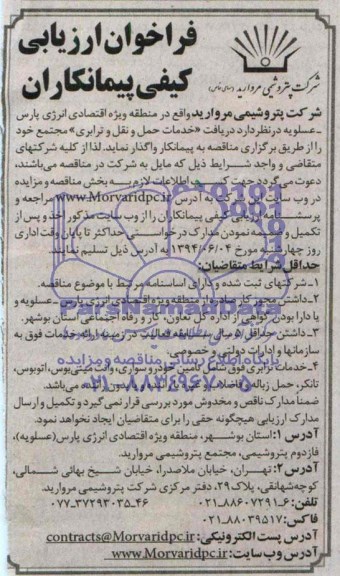 فراخوان ارزیابی
کیفی پیمانکاران
شرکت پتروشیمی مروارید (سهامی خاص)
شرکت پتروشیمی مروارید واقع در منطقه ویژه اقتصادی انرژی پارس
ـ عسلویه در نظر دارد دریافت «خدمات حمل و نقل و ترابری» مجتمع خود
را از طریق برگزاری مناقصه به پیمانکار واگذار نماید. لذا از کلیه شرکتهای
متقاضی و واجد شرایط ذیل که مایل به شرکت در مناقصه می‌باشند،
دعوت می‌گردد جهت اطلاعات لازم به بخش مناقصه و مزایده
در وب سایت این شرکت به آدرس www.Morvaridpc.ir مراجعه و
پرسشنامه ارزیابی کیفی پیمانکاران را از وب سایت مذکور اخذ و پس از
تکمیل و ضمیمه نمودن مدارک درخواستی حداکثر تا پایان وقت اداری
روز چهارشنبه مورخ ۱۳۹۴/۰۶/۰۴ به آدرس ذیل تسلیم نمایند.
حداقل شرایط متقاضیان:
۱ـ شرکتهای ثبت شده و دارای اساسنامه مرتبط با موضوع مناقصه.
۲ـ داشتن مجوز کار صادره از منطقه ویژه اقتصادی انرژی پارس ـ عسلویه و
یا دارا بودن گواهی از اداره کل تعاون، کار و رفاه اجتماعی استان بوشهر.
۳ـ داشتن حداقل ۵ سال سابقه فعالیت در زمینه ارائه خدمات فوق به
سازمانها و ادارات دولتی و خصوصی.
۴ـ خدمات ترابری فوق شامل تامین خودرو سواری، وانت، مینی‌بوس، اتوبوس،
تانکر، حمل زباله می‌باشد.
ضمناً مدارک ناقص و مخدوش مورد بررسی قرار نمی‌گیرد و تکمیل و ارسال
مدارک ارزیابی هیچگونه حقی را برای متقاضیان ایجاد نخواهد نمود.
آدرس ۱: استان بوشهر، منطقه ویژه اقتصادی انرژی پارس (عسلویه)،
فاز دوم پتروشیمی، مجتمع پتروشیمی مروارید.
آدرس ۲: تهران، خیابان ملاصدرا، خیابان شیخ بهائی شمالی،
کوچه شهانقی، پلاک ۲۹، دفتر مرکزی شرکت پتروشیمی مروارید.
تلفن: ۶ـ۸۸۶۰۷۲۹۱ـ۰۲۱ ۴۶ـ۳۷۲۹۳۰۳۵ـ۰۷۷
فاکس: ۸۸۰۳۹۵۱۷ـ۰۲۱
آدرس پست الکترونیکی: contracts@Morvaridpc.ir
آدرس وب سایت: www.Morvaridpc.ir
ParsNamadData
پایگاه اطلاع رسانی مناقصه و مزایده
۰۲۱-۸۸۳۴۹۶۷۰-۵